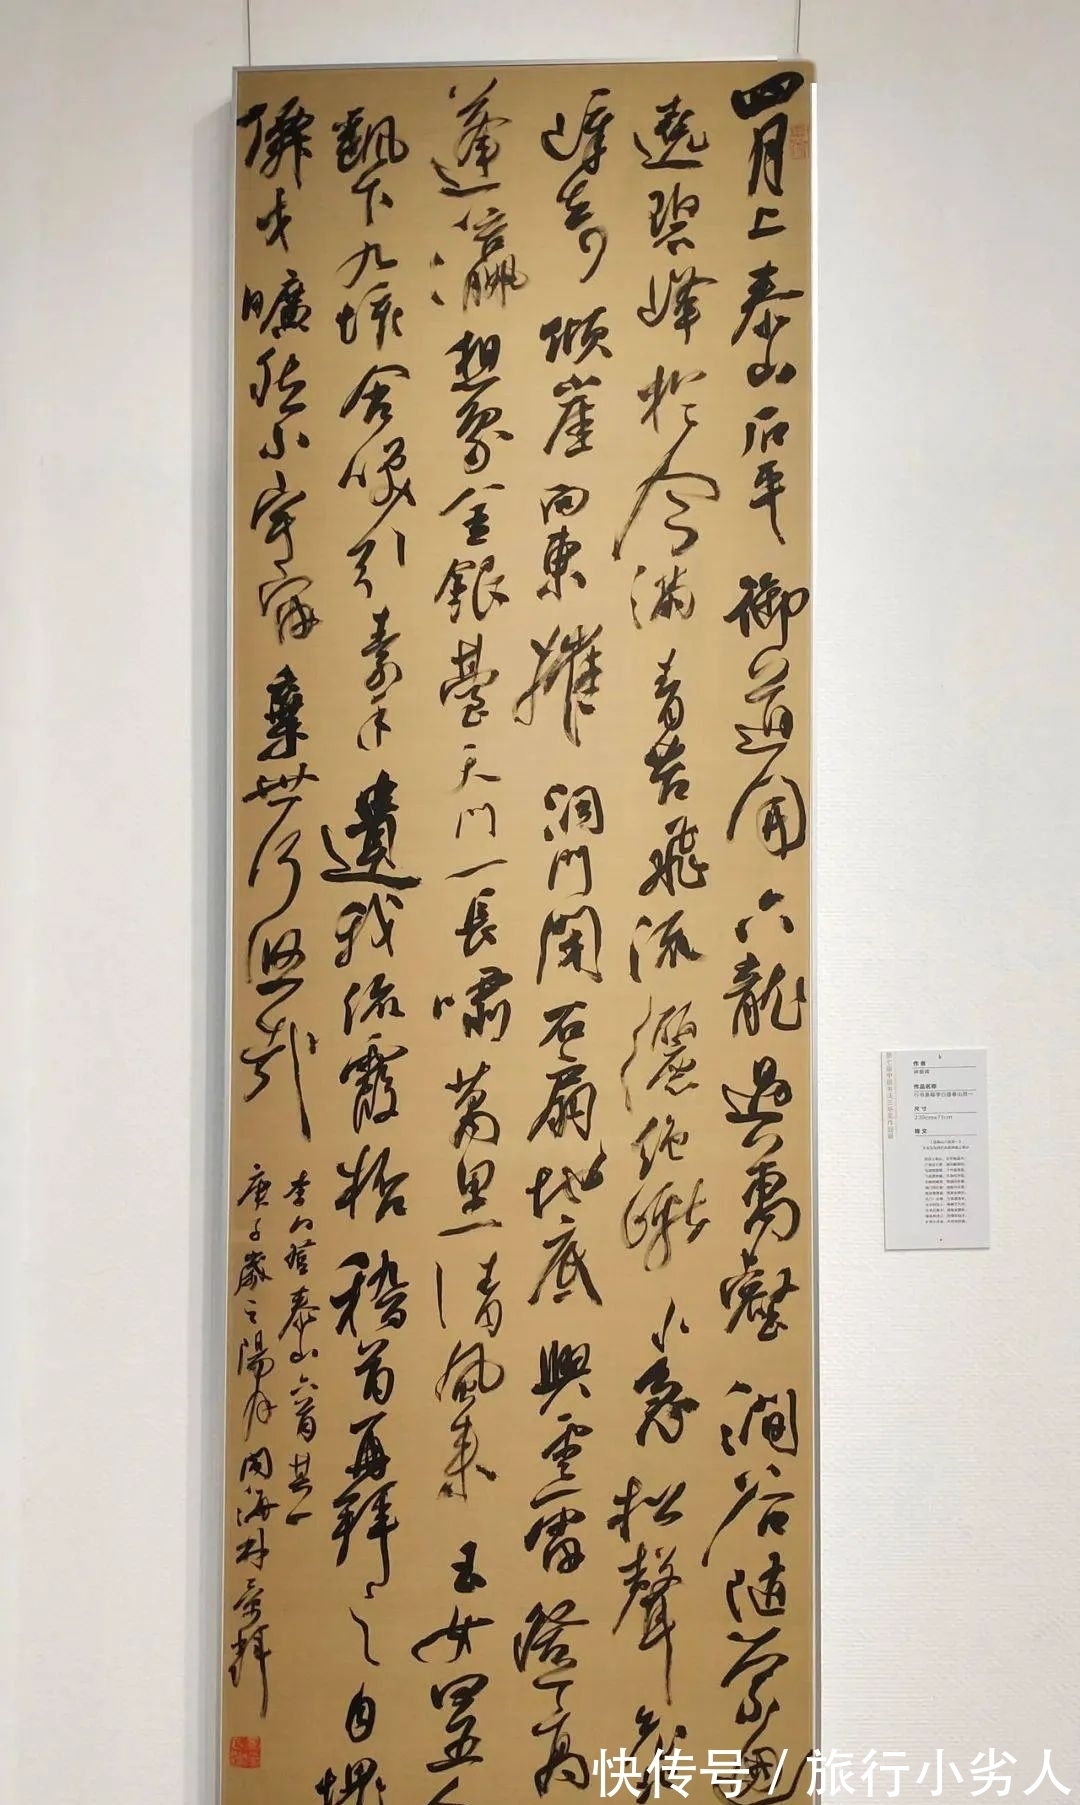 四月上泰山石平御道開六龍過萬壑澗谷隨縈迴
遶碧峰於今滿青苔飛流灑絕巘水急松聲哀
嶂奇傾崖向東摧洞門閉石扇地底興雲雷登高
蓬瀛想象金銀臺天門一長嘯萬里清風來玉女四五人
飄下九垓含笑引素手遺我流霞杯稽首再拜之自愧
僊才曠然小宇宙棄世何悠哉
李白登泰山六首其一
庚子歲之陽月閩海林景輝
作者
作品名称
尺寸
释文
快传号 / 旅行小劣人